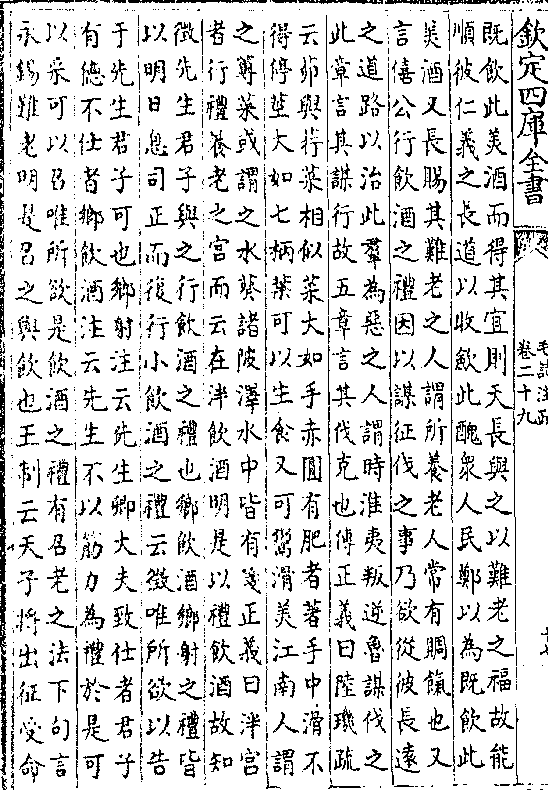 欽定四庫全書
毛詩注疏
卷二十九
既飲此美酒而得其宜則天長與之以難老之福故能
順彼仁義之長道以收斂此醜衆人民鄭以為既飲此
美酒又長賜其難老之人謂所養老人常有賙餼也又
言僖公行飲酒之禮因以謀征伐之事乃欲從彼長遠
之道路以治此羣為惡之人謂時淮夷叛逆魯謀伐之
此章言其謀行故五章言其伐克也傳正義曰陸璣疏
云茆與荇菜相似菜大如手赤圓有肥者著手中滑不
得停莖大如匕柄葉可以生食又可鬻滑美江南人謂
之蓴菜或謂之水葵諸陂澤水中皆有箋正義曰泮宮
者行禮養老之宮而云在泮飲酒明是以禮飲酒故知
徵先生君子與之行飲酒之禮也鄉飲酒鄉射之禮皆
以明日息司正而復行小飲酒之禮云徵唯所欲以告
于先生君子可也鄉射注云先生卿大夫致仕者君子
有德不仕者鄉飲酒注云先生不以筋力為禮於是可
以來可以召唯所欲是飲酒之禮有召老之法下句言
永錫難老明是召之與飲也王制云天子將出征受命